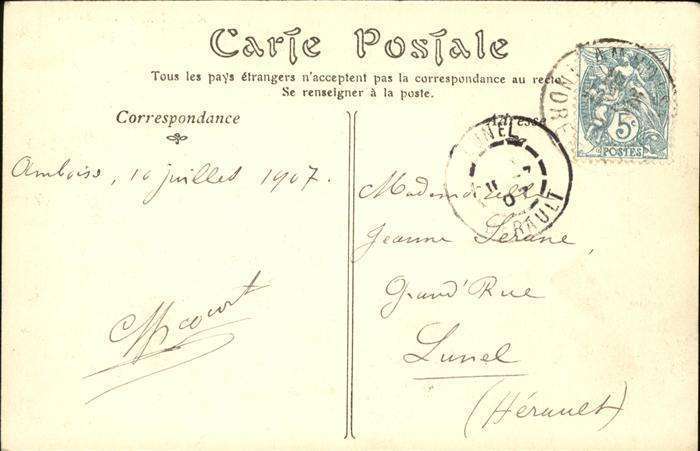 Carte Postale
Tous les pays étrangers n'acceptent pas la correspondance au recto
Se renseigner à la poste.
Correspondance
Adresse
Amboise, 10 juillet 1907.
Mademoiselle
Jeanne Serane,
Grand'Rue
Lunel
(Hérault)
5c
POSTES
LUNEL
HÉRAULT